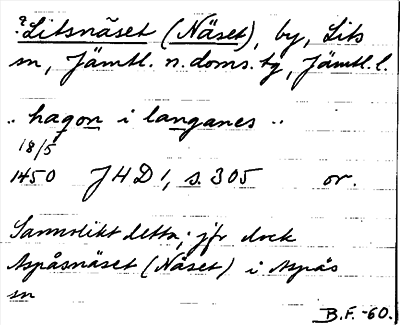 ?Litsnäset (Näset), by, Lits
sn, Jämtl. n. doms. tg, Jämtl. l.
.. haqon i langanes ..
18/5
1450 JHD 1, s. 305 or.
Sannolikt detta; jfr dock
Aspåsnäset (Näset) i Aspås
sn
B.F. -60.